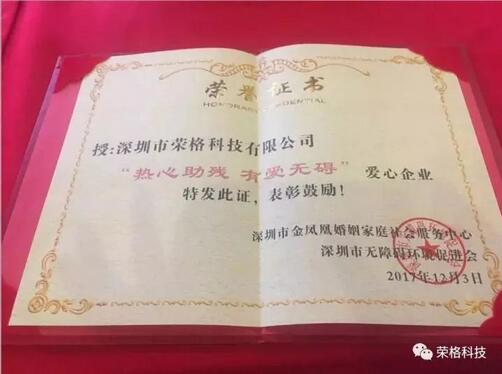 荣誉证书
HONORARY CREDENTIAL
授:深圳市荣格科技有限公司
“热心助残 有爱无碍” 爱心企业
特发此证，表彰鼓励！
深圳市金凤凰婚姻家庭社会服务中心
深圳市无障碍环境促进会
2017年12月3日
荣格科技